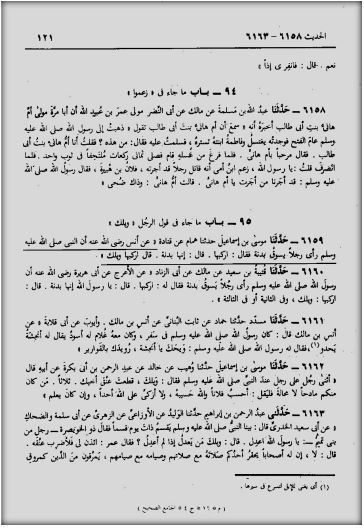 الحديث ٦١٥٨ – ٦١٦٣ ١٢١
نعم . قال : فانفِرى إذاً »
٩٤ – باب ما جاء فى « زعموا »
٦١٥٨ – حدّثنا عبدُ الله بن مَسلمة عن مالك عن أبى النَّضر مولى عمر بن عُبيد الله أن أبا مُرَّة مولى أمّ
هانىءٍ بنتِ أبى طالب أخبرَهُ أنه « سمعَ أم هانىءٍ بنتَ أبى طالب تقول « ذهبتُ إلى رسول الله صلى الله عليه
وسلم عامَ الفتح فوجدتُه يغتسلُ وفاطمةُ ابنتُه تسترُه ، فسلمتُ عليه فقال : من هذه ؟ فقلتُ أنا أمُّ هانىءٍ بنتُ أبى
طالب . فقال مرحباً بأم هانىءٍ . فلما فرغَ من غُسلهِ قام فصلى ثمانىَ ركعات مُلتحِفاً فى ثوبٍ واحد . فلما
انصرفَ قلتُ : يا رسول الله ، زعمَ ابنُ أمى أنه قاتلٌ رجلاً قد أجرتهُ ، فلانُ بن هُبيرةَ ، فقال رسول الله صلى الله
عليه وسلم : قد أجَرْنا من أجَرتِ يا أمَّ هانىء . قالت أمُّ هانىءٍ : وذاك ضُحىً »
٩٥ – باب ما جاء فى قول الرجُل « ويلك »
٦١٥٩ – حدّثنا موسىٰ بن إسماعيلَ حدثنا همام عن قتادة « عن أنس رضى الله عنه أن النبى صلى الله عليه
وسلم رأى رجلاً يسوقُ بدنة فقال : اركبها . قال : إنها بدنة . قال اركبها ويلك »
٦١٦٠ – حدّثنا قُتيبةُ بن سعيد عن مالك عن أبى الزناد « عن الأعرج عن أبى هريرة رضى الله عنه أن
رسولَ الله صلى الله عليه وسلم رأى رجلاً يَسوقُ بدنة فقال له : اركبها . قال : يا رسول الله إنها بدنة . قال :
اركبها ، ويلك ، وفى الثانية أو فى الثالثة »
٦١٦١ – حدّثنا مسدّد حدثنا حماد عن ثابت البُنانىِّ عن أنس بن مالك . وأيوبَ عن أبى قلابة « عن
أنس بن مالك قال : كان رسولُ الله صلى الله عليه وسلم فى سَفر ، وكان معهُ غُلام له أسودُ يقال له أنجشةُ
يَحدو (١) فقال له رسول الله صلى الله عليه وسلم : ويْحَكَ يا أنجشة ، رُويدَك بالقوارير »
٦١٦٢ – حدّثنا موسىٰ بن إسماعيلَ حدثنا وُهيب عن خالدٍ عن عبد الرحمن بن أبى بَكرةَ عن أبيهِ قال
« أثنى رجُل على رجلٍ عندَ النبى صلى الله عليه وسلم فقال : وَيْلكَ ، قطعتَ عنُقَ أخيك . ثلاثاً . مَن كان
منكم مادحاً لا محالةَ فليَقل : أحسبُ فلاناً واللهُ حَسيبُه ، ولا أزكى على اللهِ أحداً ، إن كان يعلم »
٦١٦٣ – حدّثنى عبدُ الرحمن بن إبراهيمَ حدَّثنا الوَليدُ عن الأوزاعىِّ عن الزهرىِّ عن أبى سلمة والضحاكِ
« عن أبى سعيد الخُدرىِّ قال : بينا النبىُّ صلى الله عليه وسلم يَقسمُ ذاتَ يوم قَسماً فقال ذو الخويصرة – رجل من
بنى تميم – : يا رسولَ الله اعدِل . قال : ويلكَ مَن يَعدلُ إذا لم أعدِل ؟ فقال عمر : ائذن لى فلأضرب عنقَه .
قال : لا ، إن له أصحاباً يحقِرُ أحدُكم صَلاتَهُ مع صلاتهم وصيامه مع صيامهم ، يَمرُقون منَ الدِّين كمروقِ
(١) أى يغنى للإبل لتسرع فى سيرها .
( م ١٦ ج ٤ الجامع الصحيح )